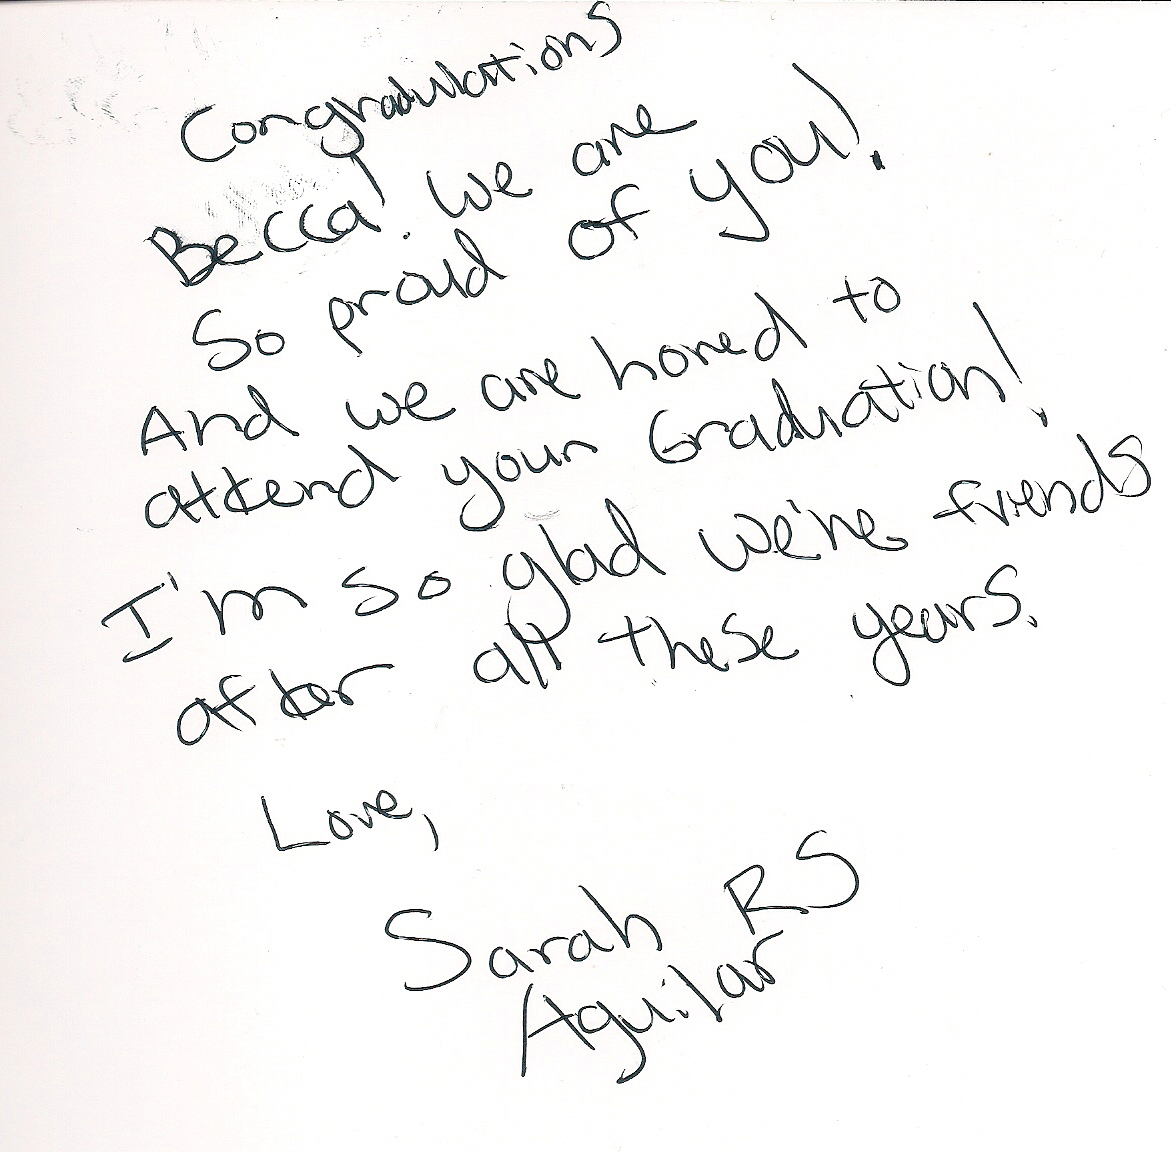 Congradulations
Becca! We are
So proud of you!
And we are honed to
attend your Graduation!
I'm so glad we're friends
after all these years.
Love,
Sarah RS
Aguilar